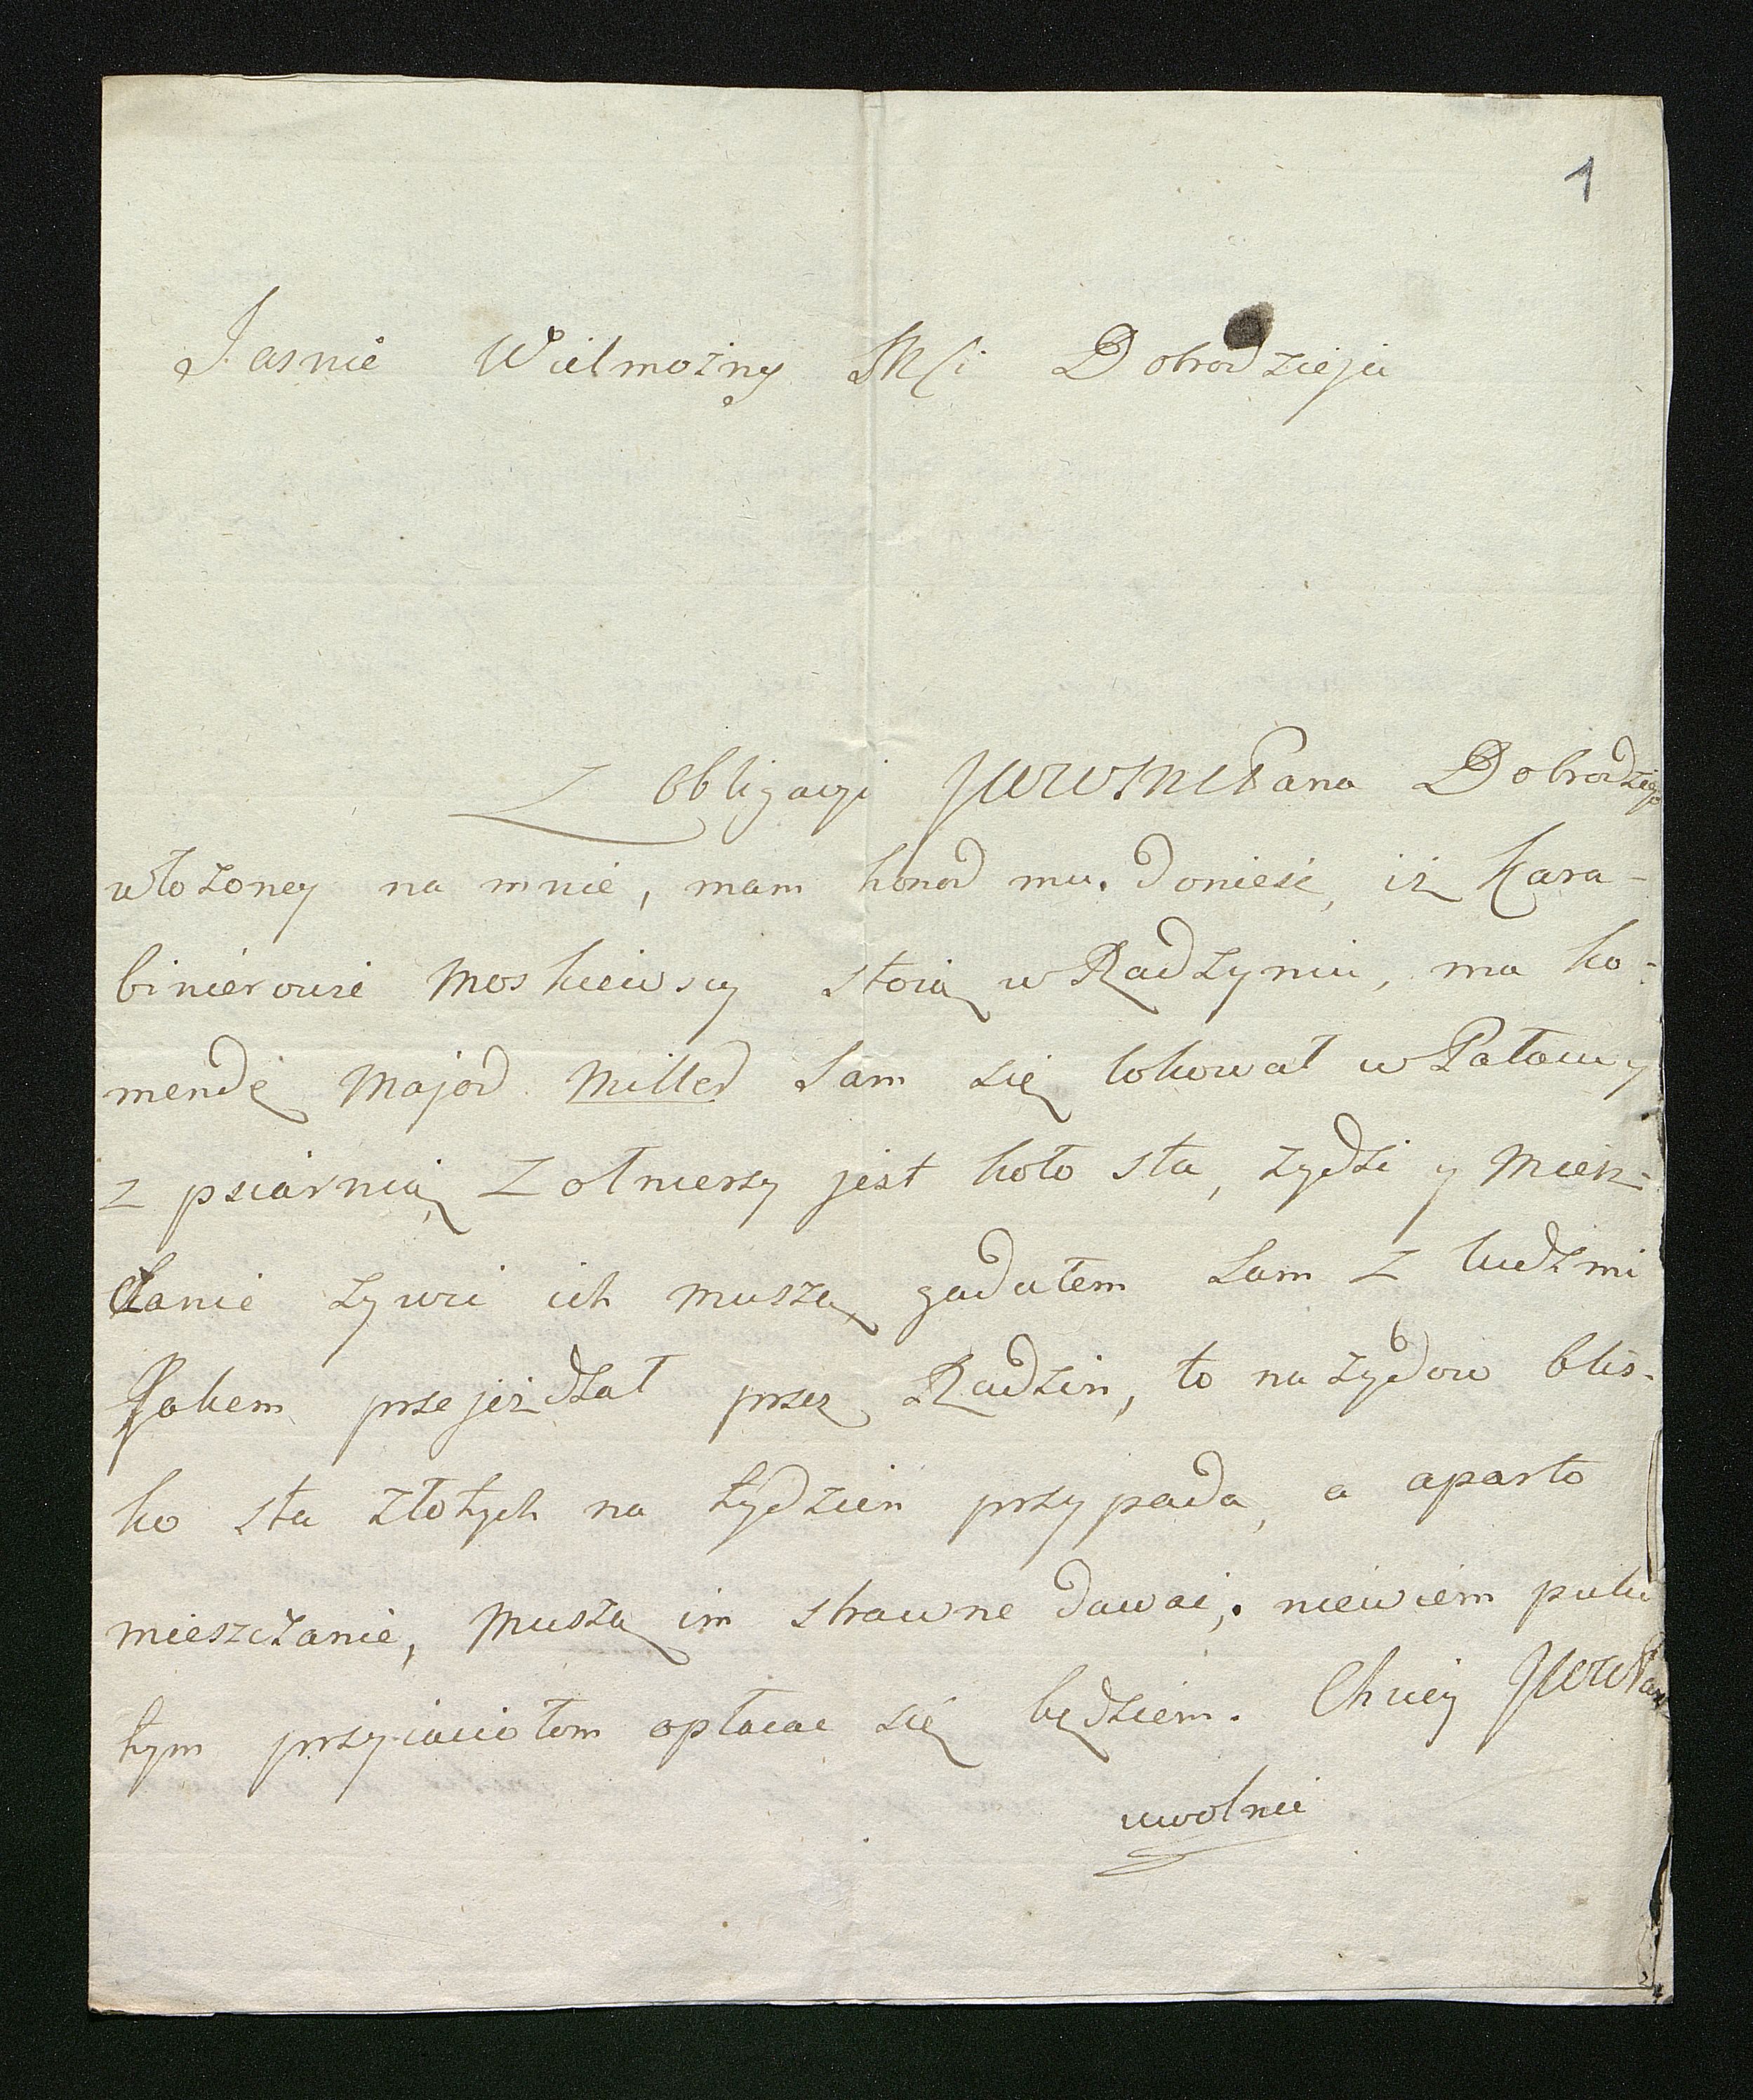 1
Jasnie Wielmożny Mści Dobrodzieju
Z Obligacyi JWWMPana Dobrodzieja
włożoney na mnie, mam honor mu donieść, iż Kara-
binierowie Moskiewscy stoią w Radzyniu, ma ko-
mendę Major Miller sam się lokował w Pałacu y
z psiarnią, Zołnierzy jest koło sta, żydzi y Miesz-
czanie żywić ich muszą, gadałem sam z ludźmi
Jakem przejeżdżał przez Radzin, to na żydow blis-
ko sta złotych na tydzień przypada, a aparto
mieszczanie, muszą im strawne dawać, niewiem puki
tym przyiaciołom opłacac się będziem. Chciey JWWPan
uwolnić